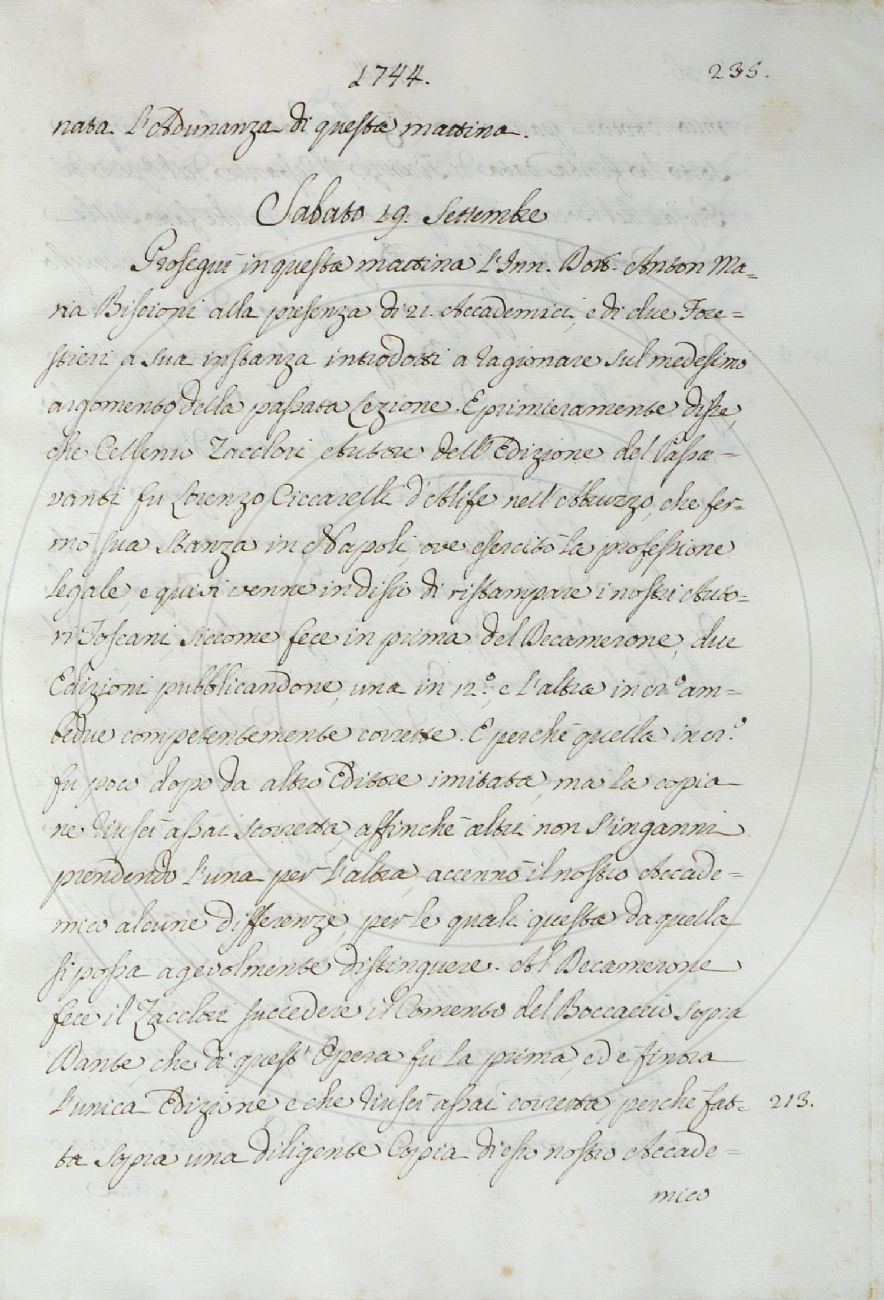 1744. 235.
nata l'Adunanza di questa mattina.
Sabato 19. Settembre
Proseguì in questa mattina l'Inn. Dott. Anton Ma-
ria Biscioni alla presenza di 21. Accademici, e di due Fore=
stieri a sua instanza introdotti a ragionare sul medesimo
argomento della passata Lezione. E primieramente disse,
che Cellenio Zacclori Autore dell'Edizione del Passa-
vanti fu Lorenzo Ciccarelli d'Alife nell'Abruzzo, che fer-
mò sua Stanza in Napoli, ove esercitò la professione
legale, e quivi venne in disio di ristampare i nostri Auto-
ri Toscani, siccome fece in prima del Decamerone, due
Edizioni pubblicandone, una in 12.º, e l'altra in 4.º am-
bedue competentemente corrette. E perchè quella in 4.º
fu poco dopo da altro Editore imitata, ma la copia
ne riuscì assai scorretta, affinchè altri non s'inganni
prendendo l'una per l'altra, accennò il nostro Accade=
mico alcune differenze, per le quali questa da quella
si possa agevolmente distinguere. Al Decamerone
fece il Zacclori succedere il Comento del Boccaccio sopra
Dante che di quest'Opera fu la prima, ed è finora
l'unica Edizione, e che riuscì assai corretta, perchè fat- 213.
ta sopra una diligente Copia di esso nostro Accade=
mico